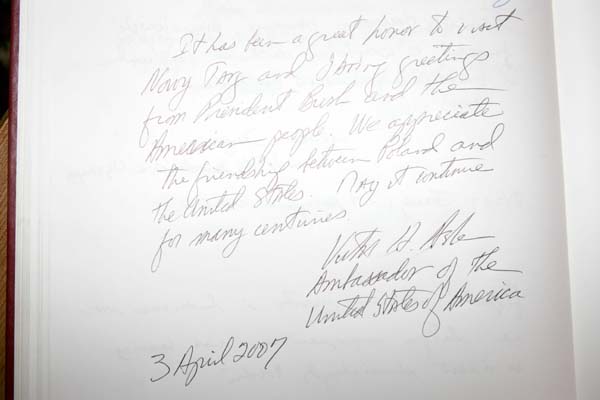 It has been a great honor to visit
Nowy Targ and I bring greetings
from President Bush and the
American people. We appreciate
the friendship between Poland and
the United States. May it continue
for many centuries
Victor H. Ashe
Ambassador of the
United States of America
3 April 2007